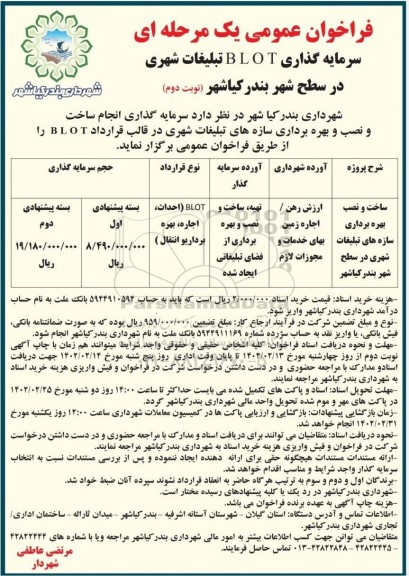 فراخوان عمومی یک مرحله ای
سرمایه گذاری BLOT تبلیغات شهری
در سطح شهر بندرکیاشهر (نوبت دوم)
شهرداری بندرکیاشهر
شهرداری بندرکیا شهر در نظر دارد سرمایه گذاری انجام ساخت
و نصب و بهره برداری سازه های تبلیغات شهری در قالب قرارداد BLOT را
از طریق فراخوان عمومی برگزار نماید.
شرح پروژه
آورده شهرداری
آورده سرمایه گذار
نوع قرارداد
حجم سرمایه گذاری
ساخت و نصب بهره برداری سازه های تبلیغات شهری در سطح شهر بندرکیاشهر
ارزش رهن / اجاره زمین بهای خدمات و مجوزات لازم
تهیه، ساخت و نصب و بهره برداری از فضای تبلیغاتی ایجاد شده
BLOT (احداث، اجاره، بهره برداریو انتقال)
بسته پیشنهادی اول
۸/۴۹۰/۰۰۰/۰۰۰ ریال
بسته پیشنهادی دوم
۱۹/۱۸۰/۰۰۰/۰۰۰ ریال
-هزینه خرید اسناد: قیمت خرید اسناد ۲/۰۰۰/۰۰۰ ریال است که باید به حساب ۵۹۴۴۹۱۰۵۹۳ بانک ملت به نام حساب
درآمد شهرداری بندرکیاشهر واریز شود.
-نوع و مبلغ تضمین شرکت در فرآیند ارجاع کار: مبلغ تضمین ۹۵۹/۰۰۰/۰۰۰ ریال بوده که به صورت ضمانتنامه بانکی،
فیش بانکی، یا واریز نقد به حساب سپرده شماره ۵۹۴۴۹۱۱۱۶۹ بانک ملت به نام شهرداری بندرکیاشهر انجام شود.
-مهلت و نحوه دریافت اسناد فراخوان: کلیه اشخاص حقیقی و حقوقی واجد شرایط میتوانند هم زمان با چاپ آگهی
نوبت دوم از روز چهارشنبه مورخ ۱۴۰۲/۰۲/۱۳ تا پایان وقت اداری روز پنج شنبه مورخ ۱۴۰۲/۰۲/۱۴ جهت دریافت
اسناد و مدارک با مراجعه حضوری و در دست داشتن درخواست شرکت در فراخوان و فیش واریزی هزینه خرید اسناد
به شهرداری بندرکیاشهر مراجعه نمایند.
-مهلت تحویل اسناد: اسناد و پاکات های تکمیل شده می بایست حداکثر تا ساعت ۱۴:۰۰ روز دو شنبه مورخ ۱۴۰۲/۰۲/۲۵
در پاکت های مهر و موم شده تحویل واحد مالی شهرداری بندرکیاشهر گردد.
-زمان بازگشایی پیشنهادات: بازگشایی و ارزیابی پاکت ها در کمیسیون معاملات شهرداری ساعت ۱۲:۰۰ روز یکشنبه مورخ
۱۴۰۲/۰۲/۳۱ انجام خواهد شد.
-نحوه دریافت اسناد: متقاضیان می توانند برای دریافت اسناد و مدارک با مراجعه حضوری و در دست داشتن درخواست
شرکت در فراخوان و فیش واریزی هزینه خرید اسناد به شهرداری بندرکیاشهر مراجعه نمایند.
-ارائه مستندات مستندات هیچگونه حقی برای ارائه دهنده ایجاد ننموده و پس از بررسی مستندات نسبت به انتخاب
سرمایه گذار واجد شرایط و مناسب اقدام خواهد شد.
-برندگان اول و دوم و سوم به ترتیب هرگاه حاضر به انعقاد قرارداد نشوند سپرده آنان ضبط خواد شد.
-شهرداری بندرکیاشهر در رد یک یا کلیه پیشنهادهای رسیده مختار است.
-هزینه چاپ آگهی به عهده برنده فراخوان می باشد.
-اطلاعات تماس و آدرس دستگاه: استان گیلان - شهرستان آستانه اشرفیه - بندرکیاشهر - میدان تاراله - ساختمان اداری/
تجاری شهرداری بندرکیاشهر.
متقاضیان می توانن جهت کسب اطلاعات بیشتر به امور مالی شهرداری بندرکیاشهر مراجعه ویا با شماره های ۴۲۸۲۲۴۴۴
- ۴۲۸۲۲۴۳۵ - ۰۱۳-۴۲۸۲۲۸۲۸ تماس حاصل فرمایند.
مرتضی عاطفی
شهردار